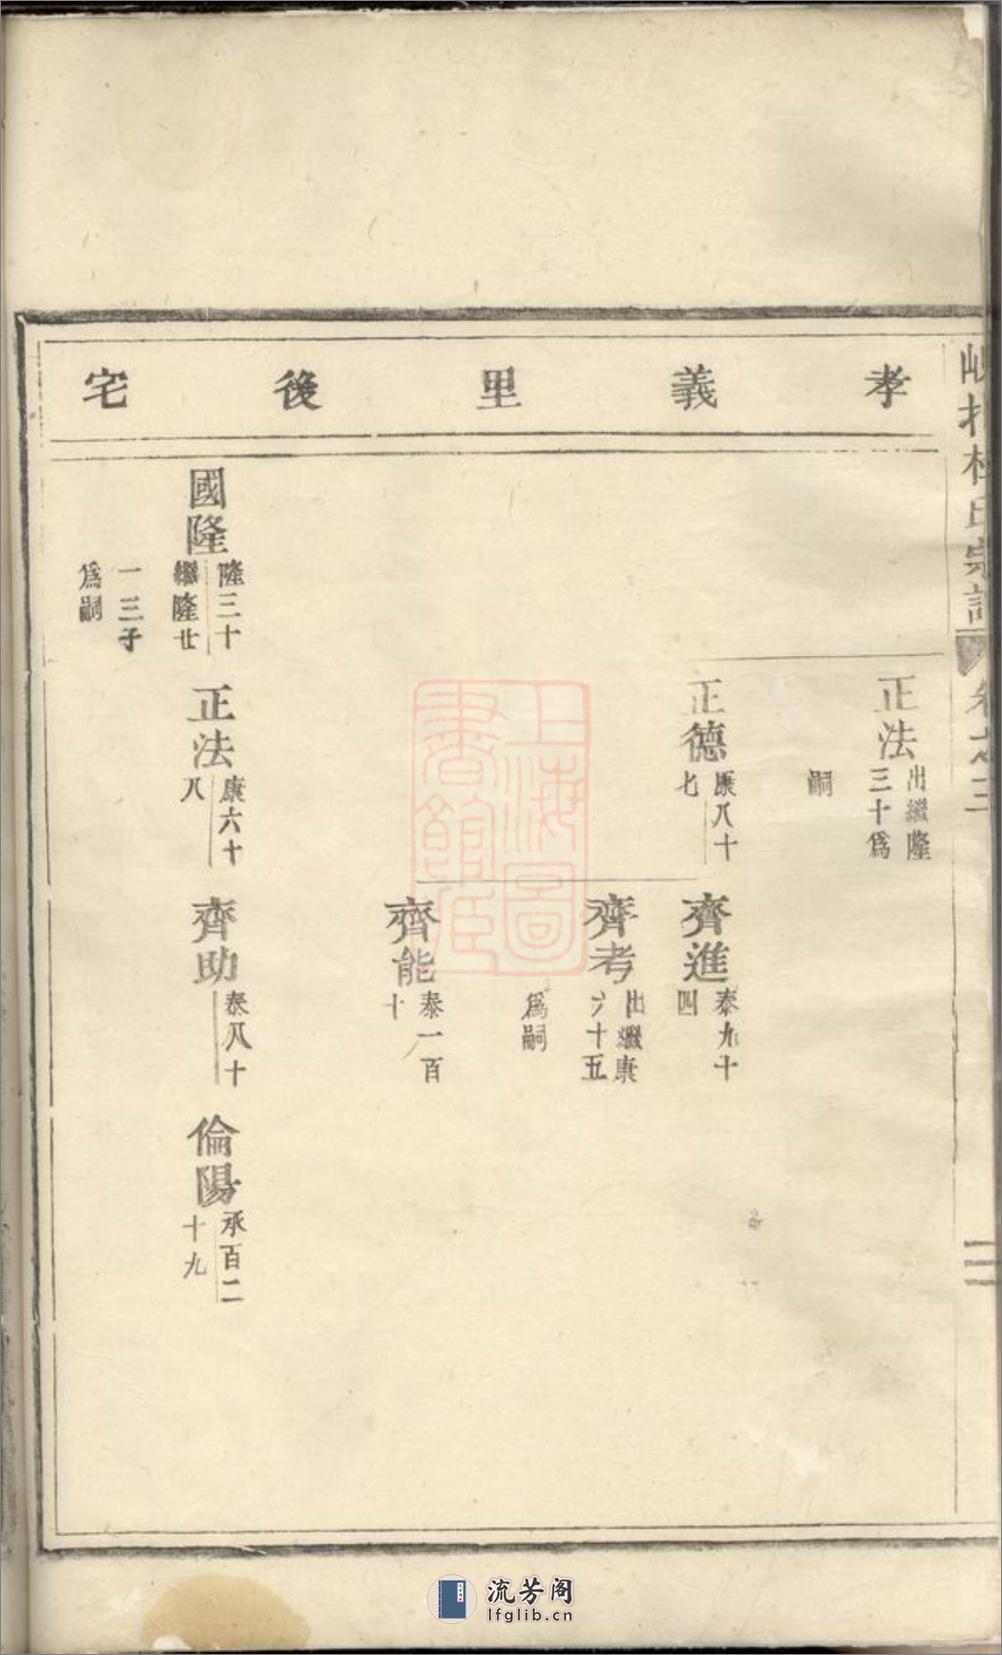 孝義里後宅
杜氏宗譜
卷之三
正法
出繼隆
三十爲
嗣
正德
康八十
七
齊進
泰九十
四
齊考
出繼康
六十五
爲嗣
齊能
泰一百
十
國隆
隆三十
繼隆廿
一三子
爲嗣
正法
康六十
八
齊助
泰八十
倫陽
承百二
十九
上海圖
書館藏
流芳阁
lfglib.cn